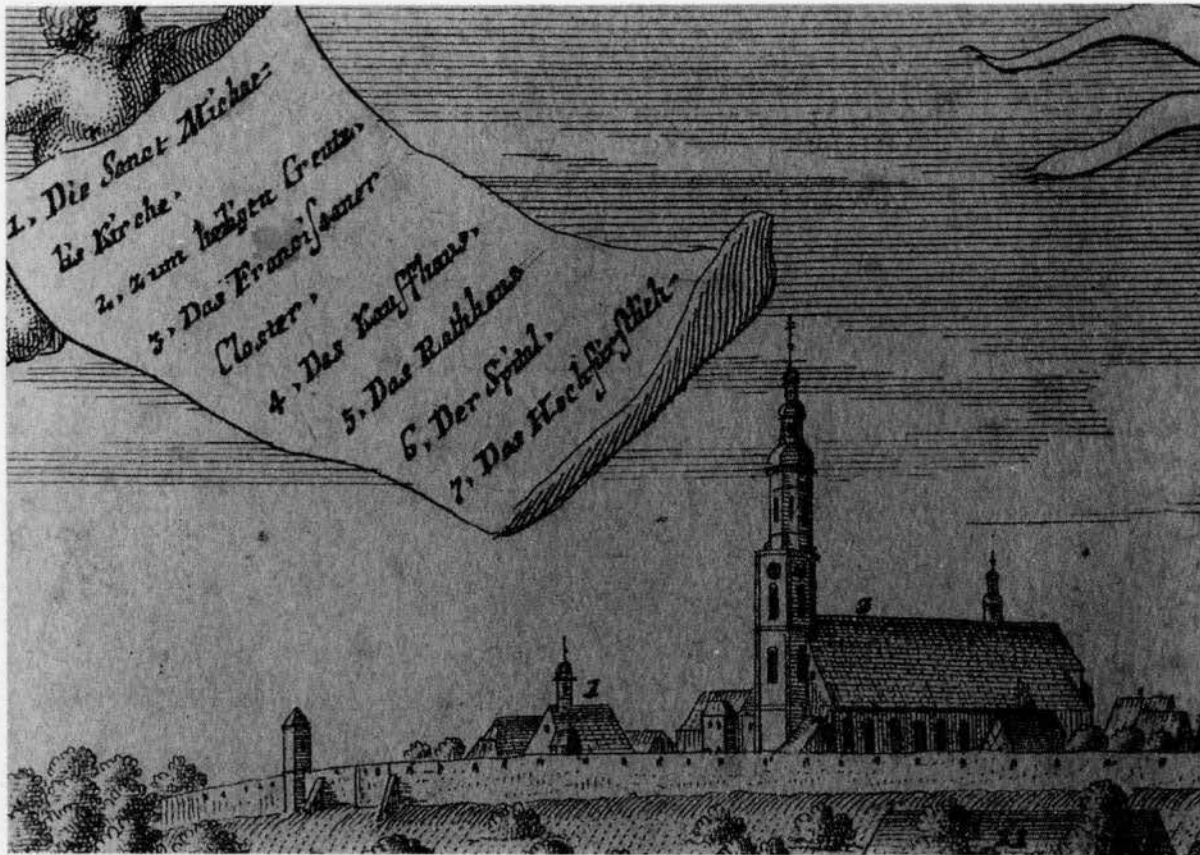 1. Die Sanct Michae-
lis Kirche.
2. zum heiligen Creutz.
3. Das Franciſcaner
Closter.
4. Das Kauffhaus.
5. Das Rathhaus
6. Der Spital.
7. Das Hochfürſtlich-
1